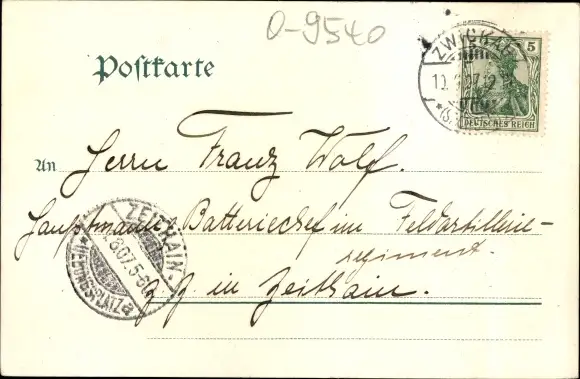 0-9540
Postkarte
ZWICKAU
5
DEUTSCHES REICH
An Herrn Franz Wolf.
Hauptmann, Batteriechef im Feldartillerie-
regiment.
z. Z. in Zeithain.
ZEITHAIN.
.8.07.5-6
ÜBUNGSPLATZ a